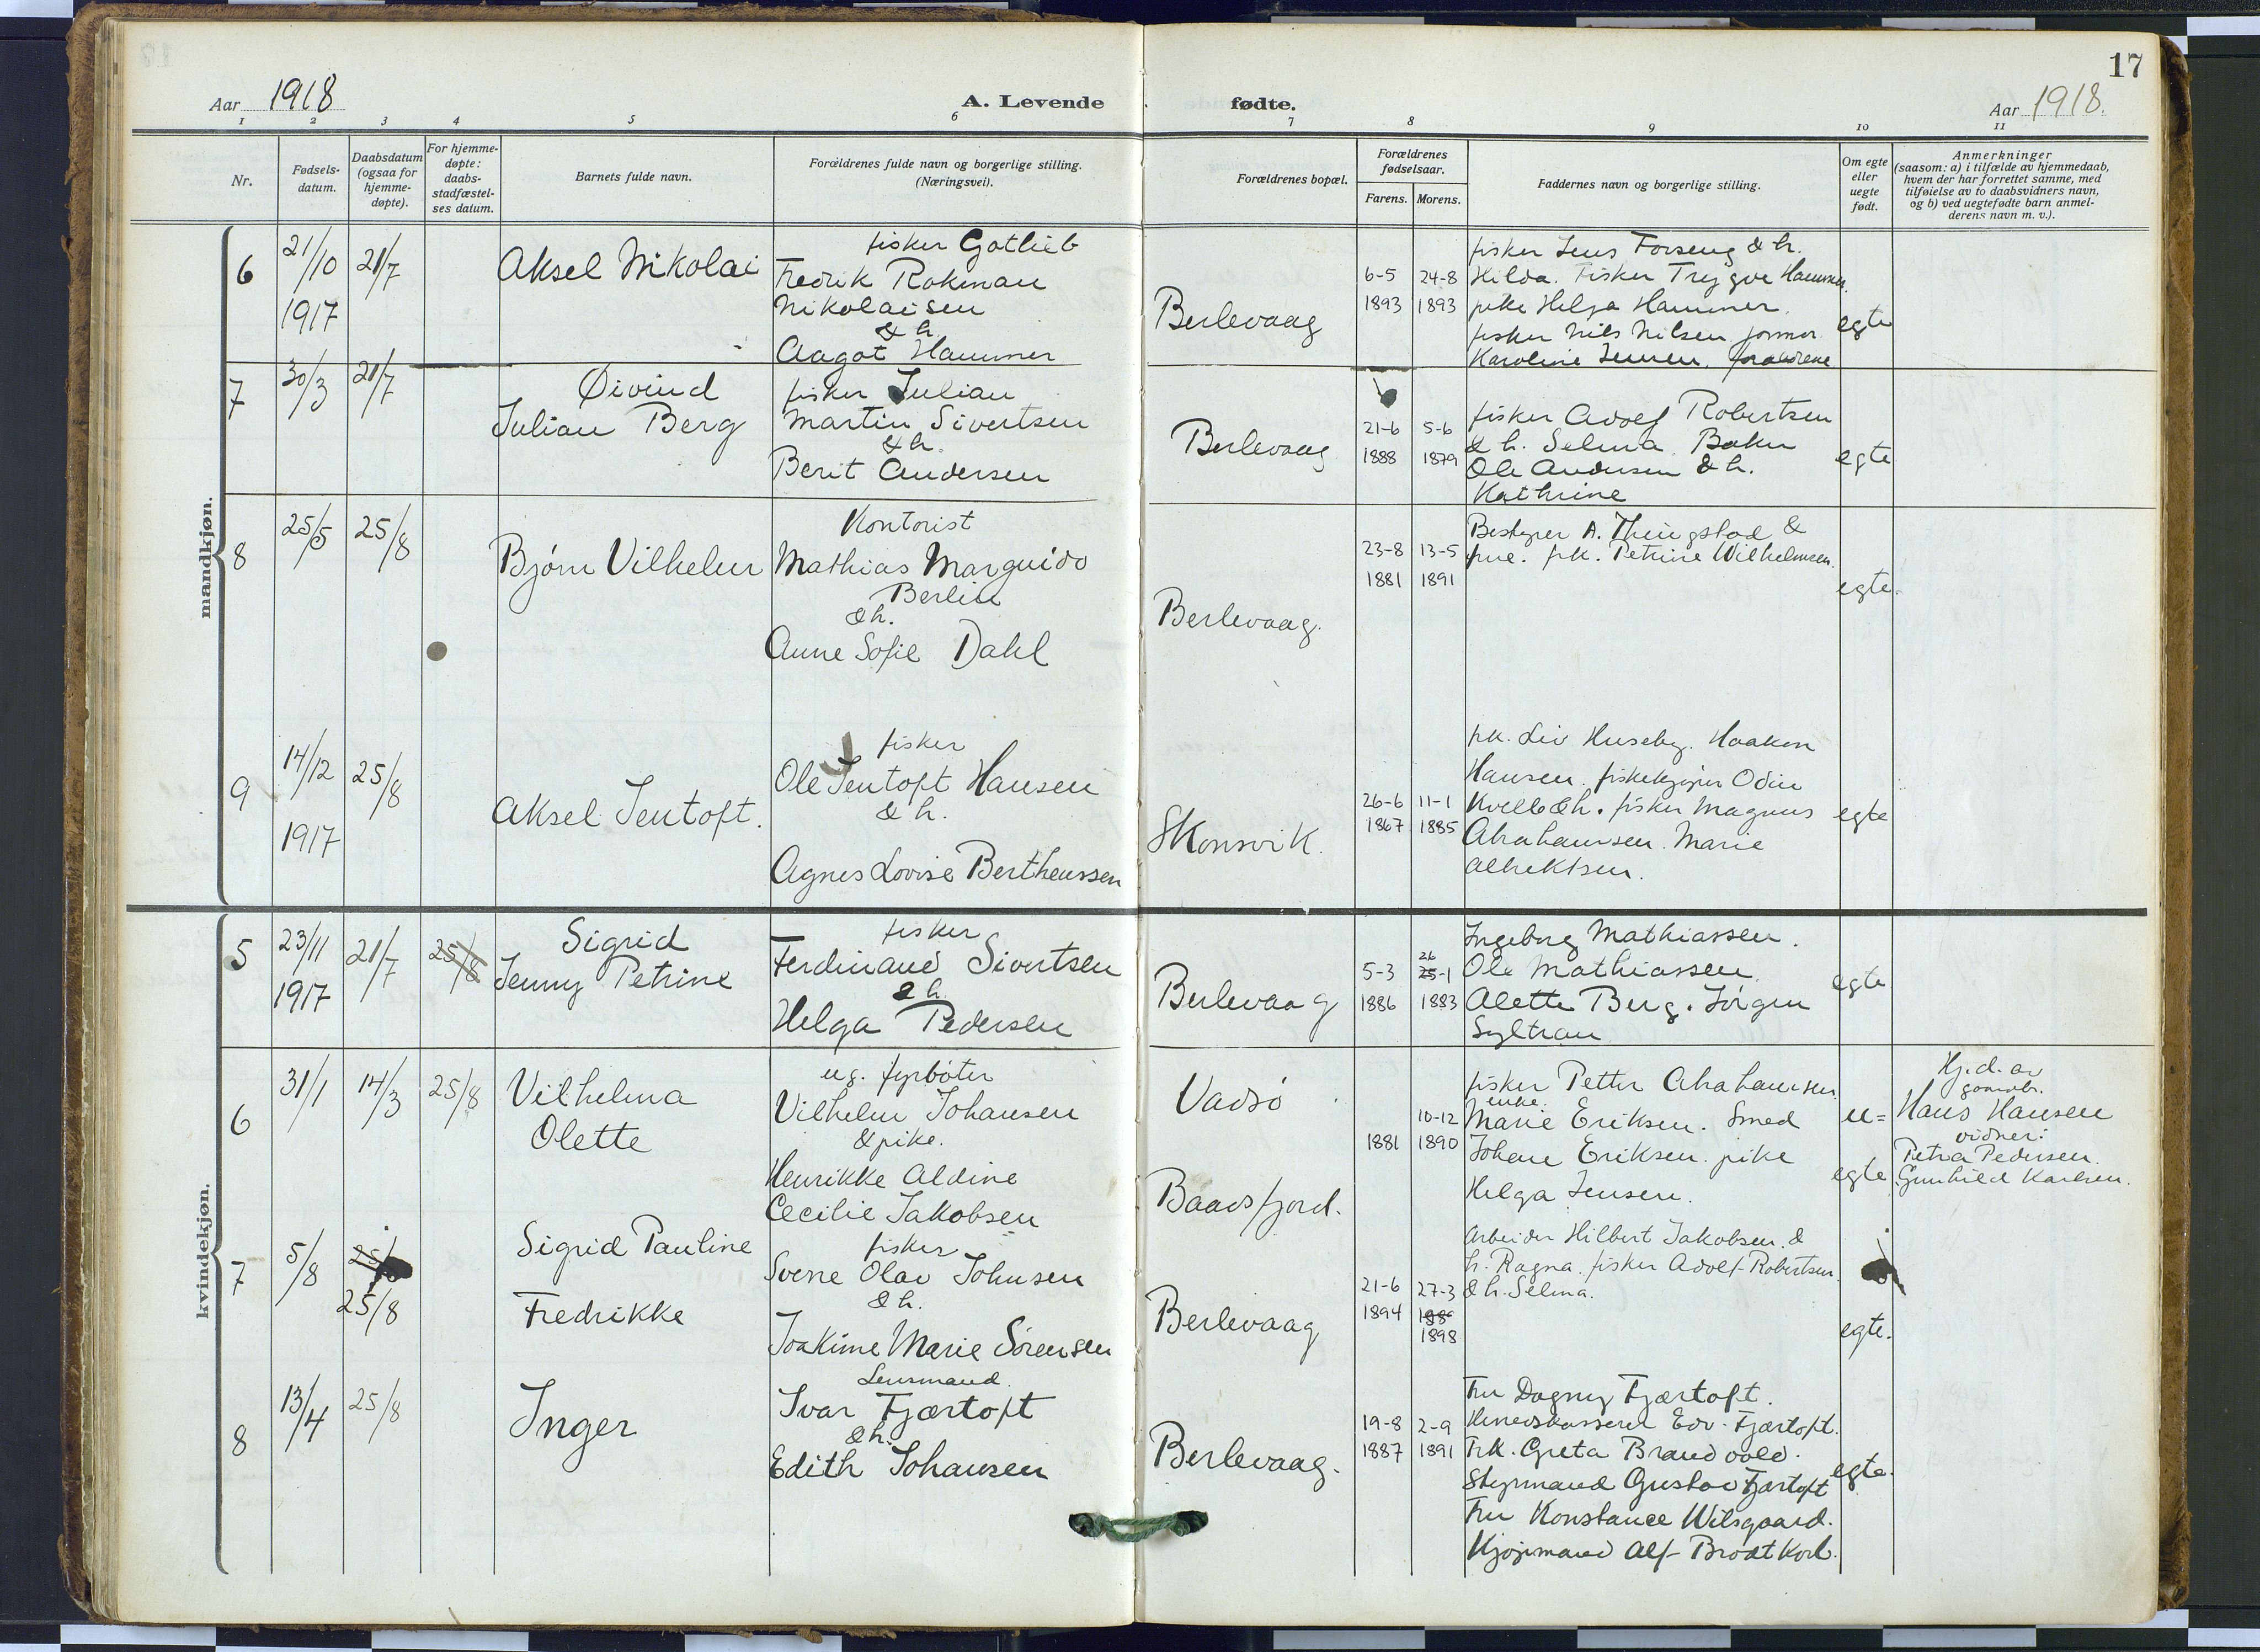 17
Aar 1918
A. Levende
fødte.
Aar 1918.
1 2 3 4 5 6 7 8 9 10 11
Nr.
Fødsels-
datum.
Daabsdatum
(ogsaa for
hjemme-
døpte).
For hjemme-
døpte:
daabs-
stadfæstel-
ses datum.
Barnets fulde navn.
Forældrenes fulde navn og borgerlige stilling.
(Næringsvei).
Forældrenes bopæl.
Forældrenes
fødselsaar.
Farens. Morens.
Faddernes navn og borgerlige stilling.
Om egte
eller
uegte
født.
Anmerkninger
(saasom: a) i tilfælde av hjemmedaab,
hvem der har forrettet samme, med
tilføielse av to daabsvidners navn,
og b) ved uegtefødte barn anmel-
derens navn m. v.).
mandkjøn.
6
21/10
1917
21/7
Aksel Nikolai
fisker Gotlieb
Fredrik Rokman
Nikolaisen
& h.
Aagot Hammer
Berlevaag
6-5
1893
24-8
1893
fisker Jens Forseng & h.
Hilda. Fisker Trygve Hammer.
pike Helga Hammer.
fisker Nils Nilsen
Karoline Jensen.
egte
7
30/3
21/7
Øivind
Julian Berg
fisker Julian
Martin Sivertsen
& h.
Berit Andersen
Berlevaag
21-6
1888
5-6
1879
fisker Adolf Robertsen
& h. Selma. Baker
Ole Andersen & h.
Kathrine
egte
8
25/5
25/8
Bjørn Vilhelm
Kontorist
Mathias Marguido
Berlin
& h.
Anne Sofie Dahl
Berlevaag.
23-8
1881
13-5
1891
Bestyrer A. Thingstad &
frue. frk. Petrine Wilhelmsen.
egte.
9
14/12
1917
25/8
Aksel Jentoft.
fisker
Ole Jentoft Hansen
& h.
Agnes Lovise Bertheussen
Skonsvik.
26-6
1867
11-1
1885
frk. Liv Huseby. Haakon
Hansen. fiskekjøper Odin
Kvello & h. fisker Magnus
Abrahamsen. Marie
Albriktsen.
egte
kvindekjøn.
5
23/11
1917
21/7
25/8
Sigrid
Jenny Petrine
fisker
Ferdinand Sivertsen
& h.
Helga Pedersen
Berlevaag
5-3
1886
26
25-1
1883
Ingeborg Mathiassen.
Ole Mathiassen
Alette Berg. Jørgen
Syltran
egte
6
31/1
14/3
25/8
Vilhelma
Olette
ug. fyrbøter
Vilhelm Johansen
& pike.
Henrikke Aldine
Cecilie Jakobsen
Vadsø
Baadsfjord.
1881
10-12
1890
fisker Petter Abrahamsen.
enke
Marie Eriksen. Smed
Johan Eriksen. pike
Helga Jensen.
u=
egte
Hj.d. av
Hans Hansen
vidner:
Petra Pedersen.
Gunhild Karlsen.
7
5/8
25/8
25/8
Sigrid Pauline
Fredrikke
fisker
Sverre Olav Johnsen
& h.
Joakime Marie Sørensen
Berlevaag
21-6
1894
27-3
1898
Arbeider Hilbert Jakobsen. &
h. Ragna. fisker Adolf Robertsen.
& h. Selma.
egte.
8
13/4
25/8
Inger
Lensmand.
Ivar Fjærtoft
& h.
Edith Johansen
Berlevaag.
19-8
1887
2-9
1891
Fru Dagny Fjærtoft.
Herredskasserer Edv. Fjærtoft.
Frk. Greta Brandvold.
Styrmand Gustav Fjærtoft
Fru Konstance Wilsgaard.
Kjøpmand Alf Brodtkorb.
egte.